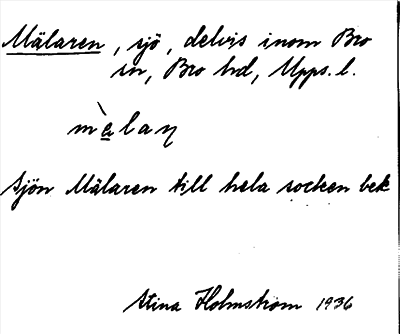 Mälaren, sjö, delvis inom Bro
sn, Bro hd, Upps. l.
mὰlaɳ
Sjön Mälaren till hela socken bek
Stina Holmström 1936